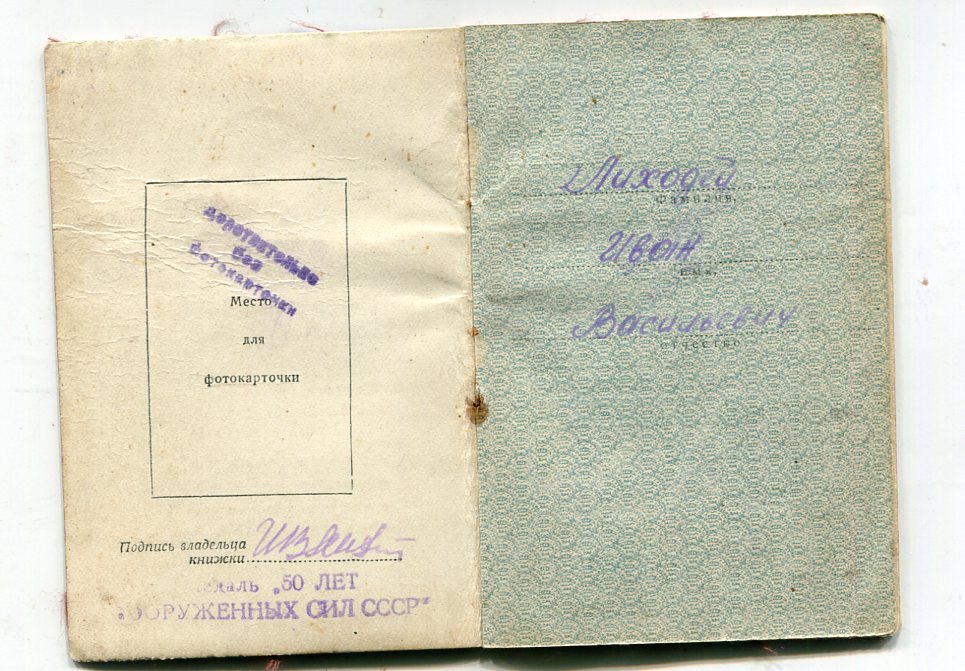 действительно
без
фотокарточки
Место
для
фотокарточки
Подпись владельца
книжки
медаль „50 ЛЕТ
ВООРУЖЕННЫХ СИЛ СССР"
Лиходей
фамилия,
Иван
имя,
Васильевич
отчество